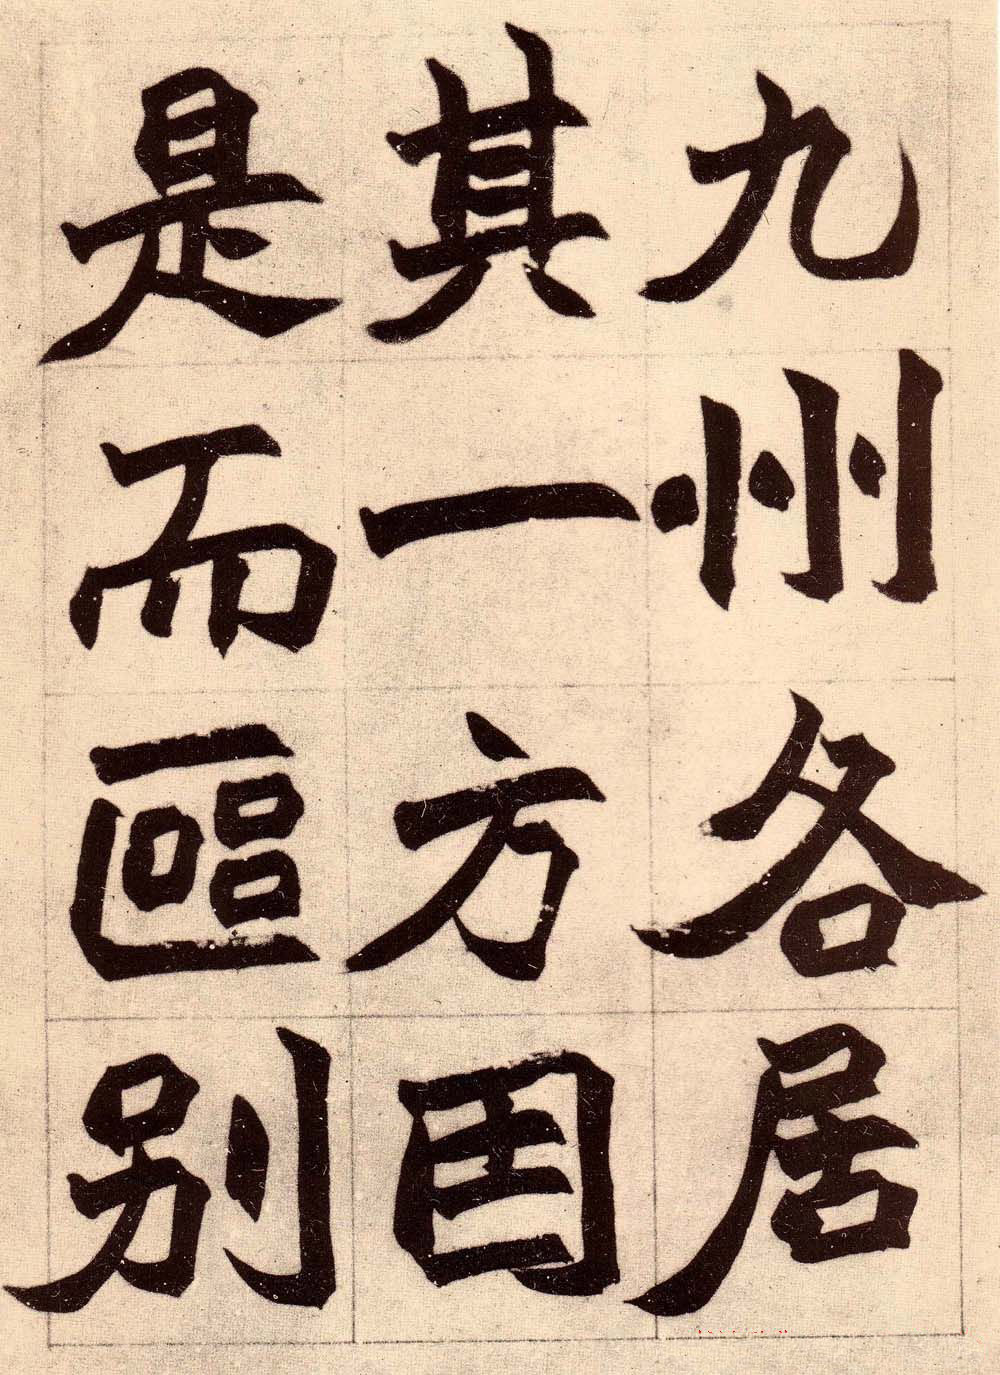 九州各居
其一方因
是而區別